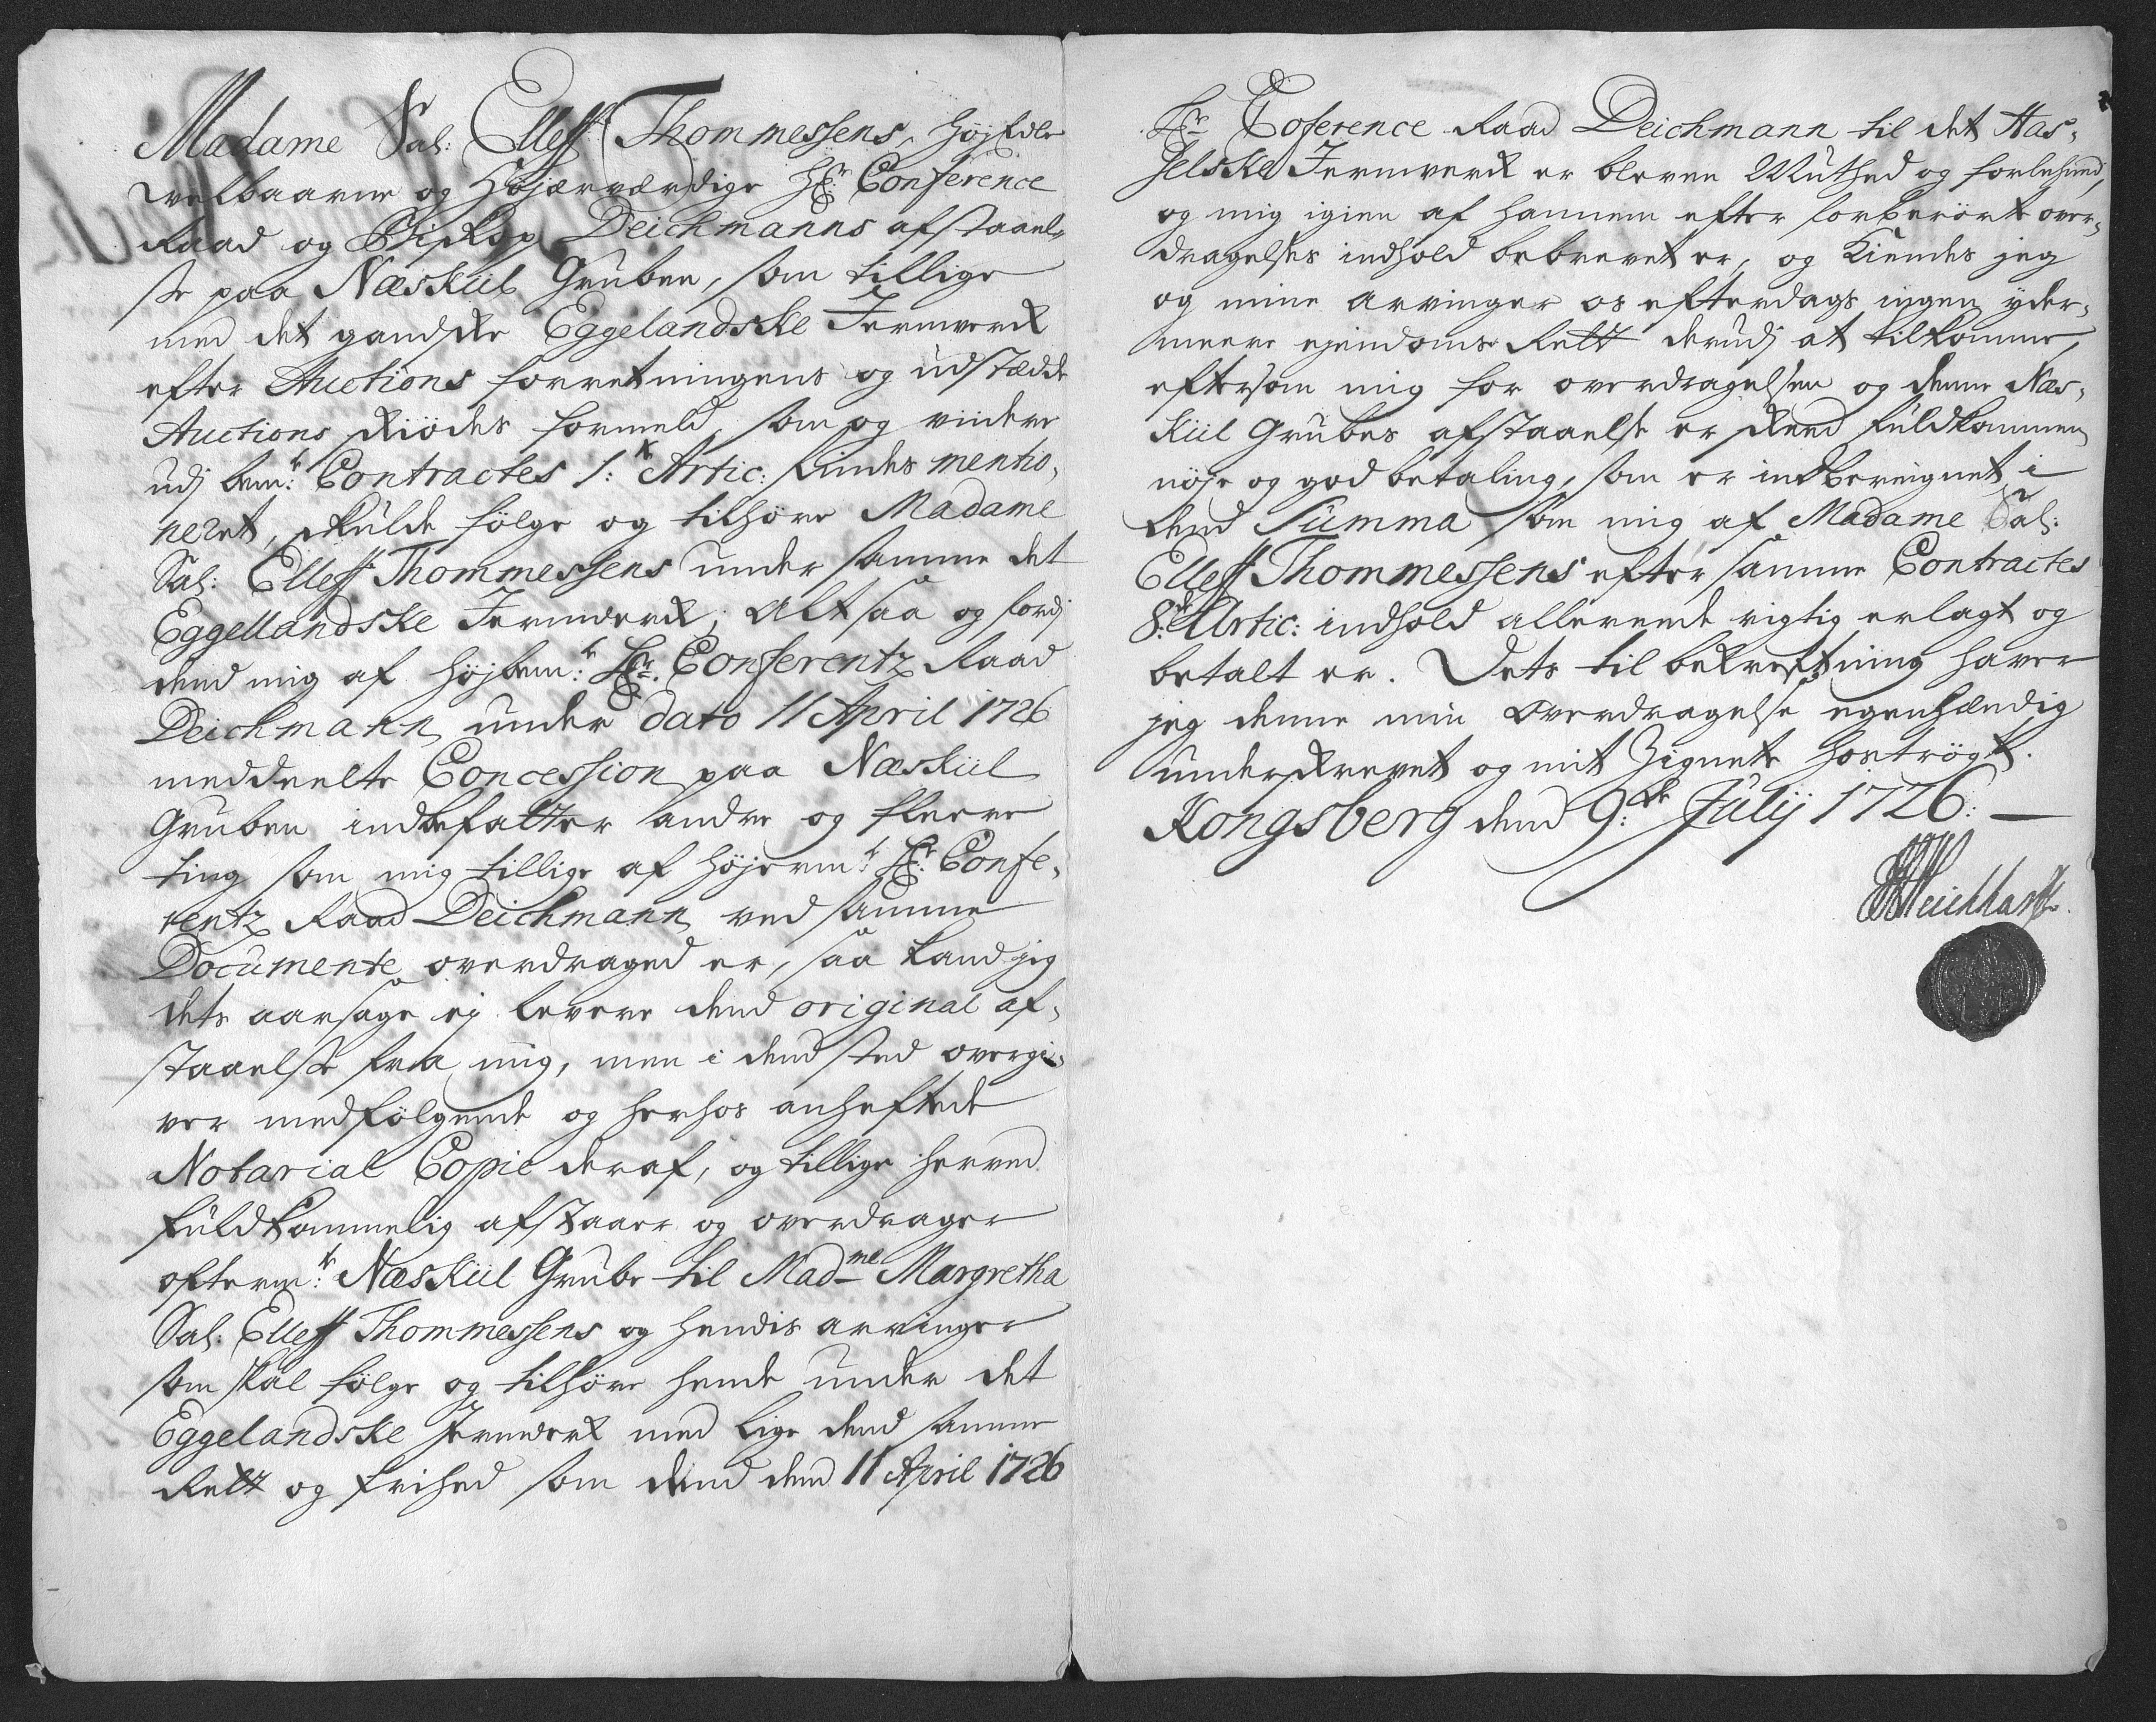 Madame Sal: Elleff Thommessens, Højædle
velbaarne og Højærværdige Hr: Conference
Raad og Biskop Deichmanns afstaael-
se paa Næskiil Gruben, som tillige
med det gandske Eggelandske Jernverk
efter Auctions forretningens og udstædde
Auctions skiödes formeld, som og viidere
udj bem:te Contractes 1:te Artic: findes mentio,
neret, skulde fölge og tilhöre Madame
Sal: Elleff Thommessens under samme det
Eggellandske Jernverk; Alt saa og fordj
dend mig af højbem:te Hr: Conferentz Raad
Deichmann under dato 11 April 1726
meddeelte Concession paa Næskiil
Gruben indbefatter andre og fleere
ting som mig tillige af højerm:te Hr: Confe,
rentz Raad Deichmann ved samme
Documente overdraged er, saa kand jeg
dets aarsage ej levere dend original af,
staaelse fra mig, men i dend sted overgi,
ver medfölgende og herhos anheftede
Notarial Copie deraf, og tillige herved
fuldkommelig afstaaer og overdrager
ofterm:te Næskiil Grube til Mad:me Margretha
Sal: Elleff Thommessens og hendis arvinger
som skal fölge og tilhöre hende under det
Eggelandske Jernverk med lige dend samme
Rett og frihed som dend dend 11 April 1726
Hr: Coference Raad Deichmann til det Has,
selske Jernverk er bleven Muthed og forlehned,
og mig igien af hannem efter forberörte over,
dragelses indhold bebrevet er, og Kiendes jeg
og mine arvinger os efterdags ingen yder,
meere ejendoms Rett derudj at tilkomme,
eftersom mig for overdragelsen og denne Næs,
kiil Grubes afstaaelse er skeed fuldkommen
nöje og god betaling, som er indberegnet i
dend Summa som mig af Madame Sal:
Elleff Thommessens efter samme Contractes
8:de Artic: indhold allereede rigtig erlagt og
betalt er. Dets til bekreftning haver
jeg denne min Overdragelse egenhændig
underskrevet og mit Zignete hoströgt.
Kongsberg dend 9:de Julij 1726: